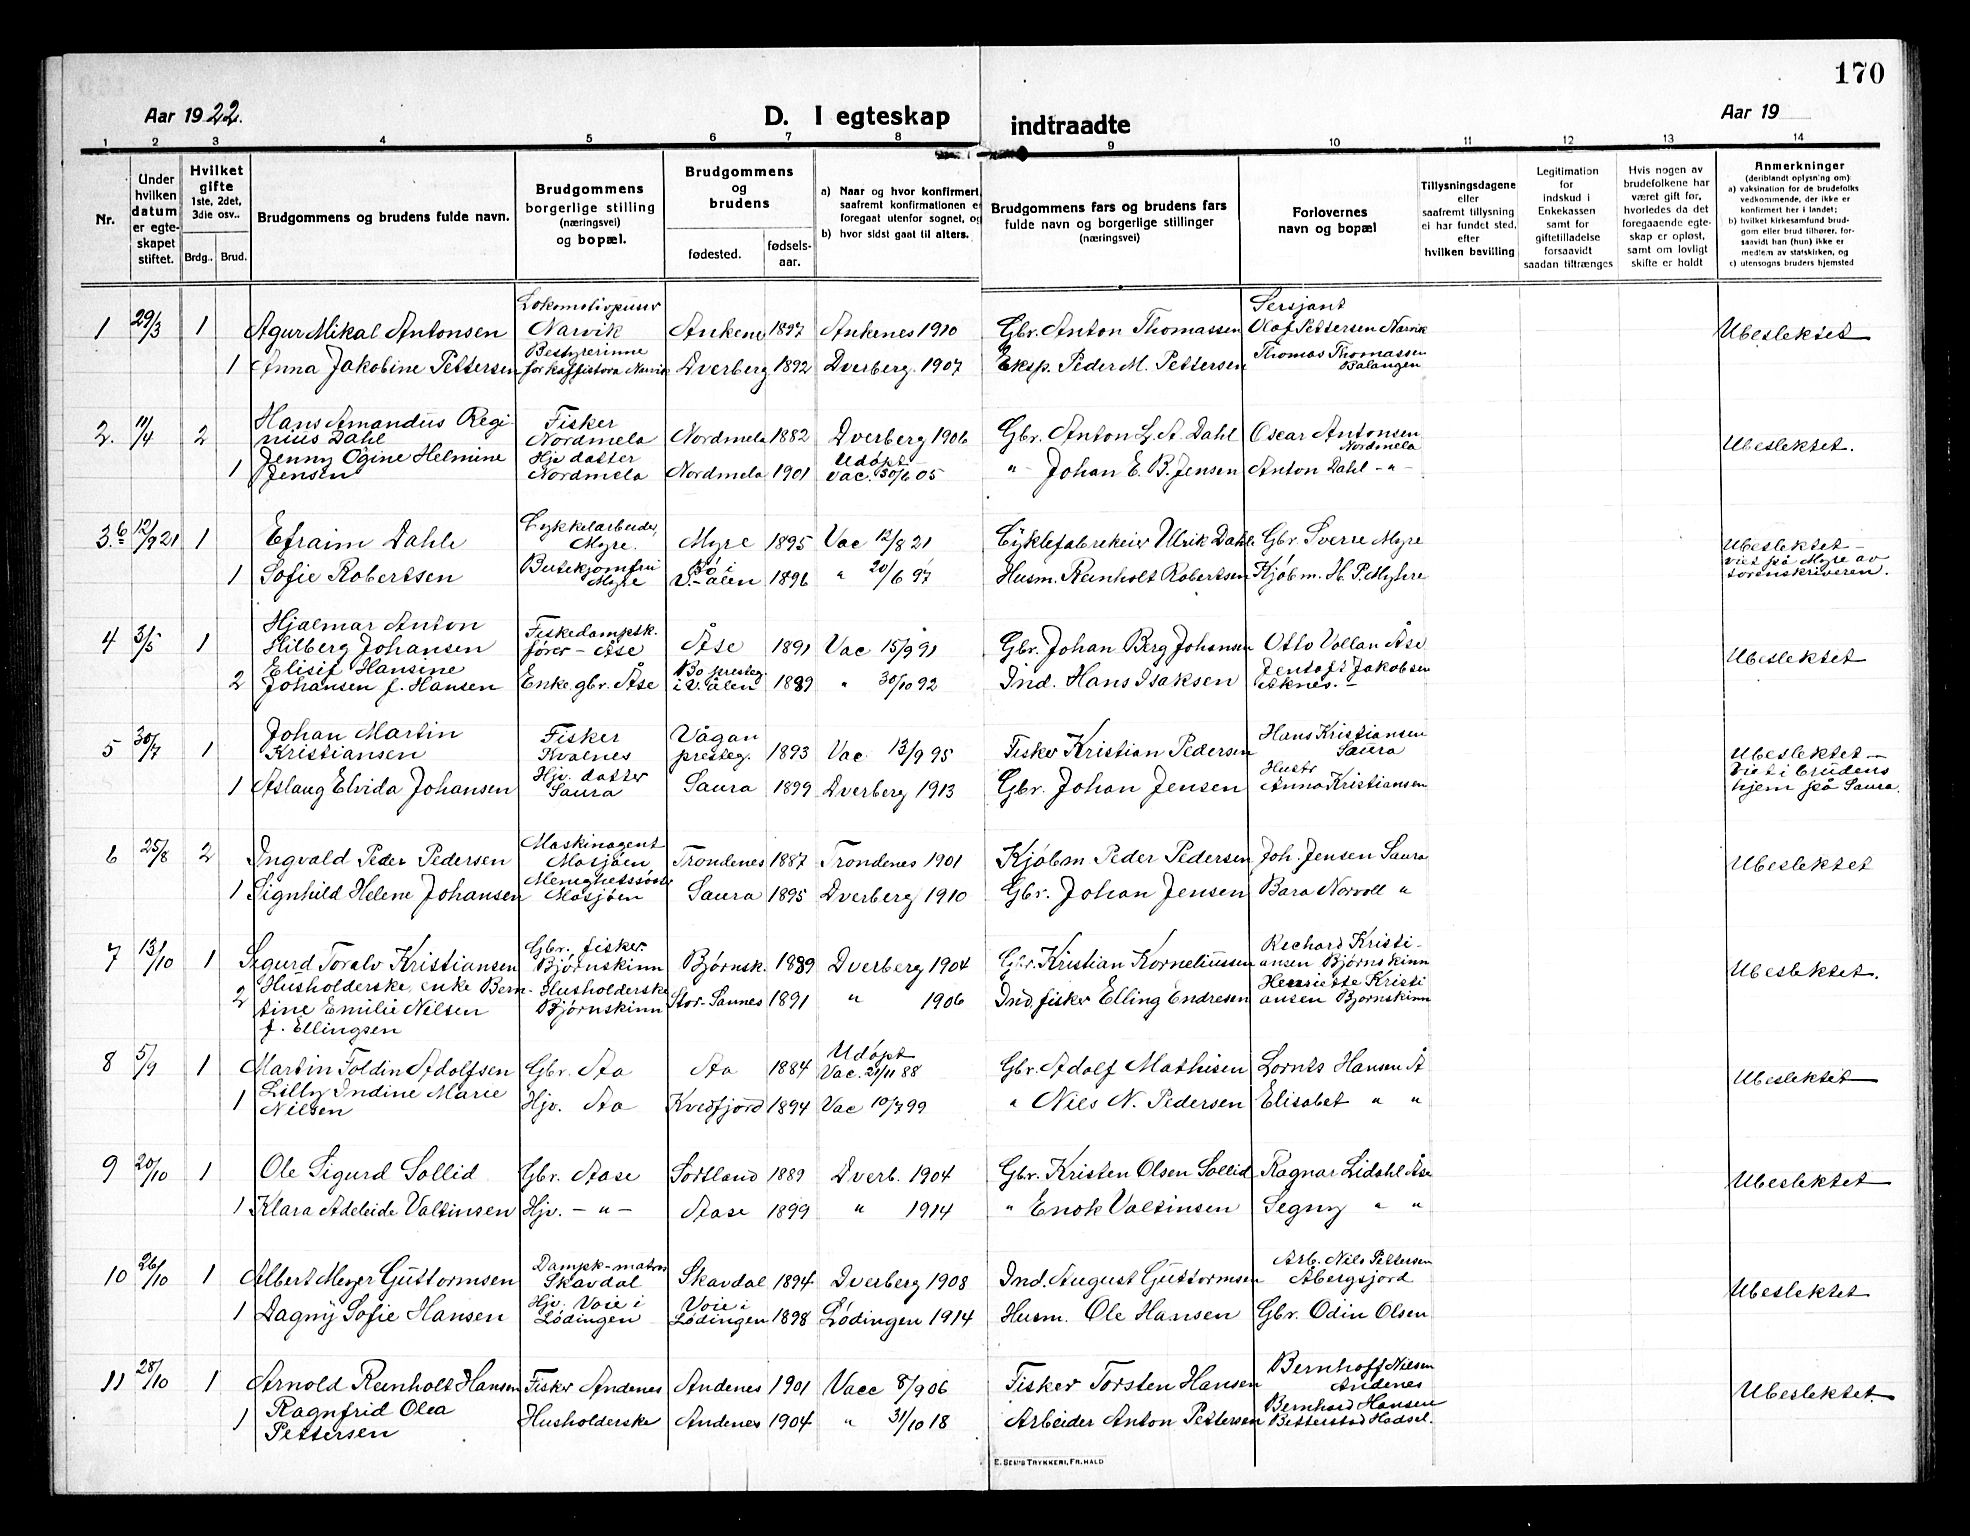 170
Aar 1922.
D. I egteskap indtraadte
Aar 19
1 2 3 4 5 6 7 8 9 10 11 12 13 14
Nr.
Under hvilken datum er egteskapet stiftet.
Hvilket gifte 1ste, 2det, 3die osv..
Brdg.. Brud.
Brudgommens og brudens fulde navn.
Brudgommens borgerlige stilling (næringsvei) og bopæl.
Brudgommens og brudens
fødested. fødselsaar.
a) Naar og hvor konfirmert, saafremt konfirmationen er foregaat utenfor sognet, og
b) hvor sidst gaat til alters.
Brudgommens fars og brudens fars fulde navn og borgerlige stillinger (næringsvei)
Forlovernes navn og bopæl
Tillysningsdagene eller saafremt tillysning ei har fundet sted, efter hvilken bevilling
Legitimation for indskud i Enkekassen samt for giftetilladelse forsaavidt saadan tiltrænges
Hvis nogen av brudefolkene har været gift før, hvorledes da det foregaaende egteskap er opløst, samt om lovligt skifte er holdt
Anmerkninger (deriblandt oplysning om)
a) vaksination for de brudefolks vedkommende, der ikke er konfirmert her i landet;
b) hvilket kirkesamfund brudgom eller brud tilhører, forsaavidt han (hun) ikke er medlem av statskirken, og
c) utensogns bruders hjemsted
1 29/3 1 Agur Mikal Antonsen Lokomotivpusser Narvik Ankenes 1897 Ankenes 1910 Gbr. Anton Thomassen Sersjant Olaf Pettersen Narvik Ubeslektet
1 Anna Jakobine Pettersen Bestyrerinne for kaffistova Narvik Dverberg 1892 Dverberg. 1907 Eksp. Peder M. Pettersen Thomas Thomassen Balangen
2. 11/4 2 Hans Amandus Reginius Dahl Fisker Nordmela Nordmela 1882 Dverberg 1906 Gbr. Anton L. A. Dahl Oscar Antonsen Nordmela Ubeslektet.
1 Jenny Ogine Helmine Jensen Hjv datter Nordmela Nordmela 1901 Udöpt Vac. 30/6 05 " Johan E. B. Jensen Anton Dahl - " -
3. 6 12/9 21 1 Efraim Dahle Sykkelarbeider, Myre. Myre 1895 Vac 12/8 21 Cyklefabrekeir Ulrik Dahl. Gbr. Sverre Myre Ubeslektet - viet på Myre av sorenskriveren.
1 Sofie Robertsen Butikjomfru Myre Bö i V.-ålen 1896 " 20/6 97 Husm. Reinholt Robertsen Kjöbm. H. P. Myhre
4 3/5 1 Hjalmar Anton Hilberg Johansen Fiskedampsk. fører - Åse Åse 1891 Vac 15/9 91 Gbr. Johan Berg Johansen Otto Vollan Åse Ubeslektet
2 Elisif Hansine Johansen f. Hansen Enke gbr. Åse Bö presteg i V. ålen 1889 " 30/10 92 Ind. Hans Isaksen Jentoft Jakobsen
5 30/7 1 Johan Martin Kristiansen Fisker Kvalnes Vågan presteg. 1893 Vac 13/9 95 Fisker Kristian Pedersen Hans Kristiansen Saura Ubeslektet - viet i brudens hjem på Saura.
1 Aslaug Elvida Johansen Hjv. datter Saura Saura 1899 Dverberg 1913 Gbr. Johan Jensen Hustr Anna Kristiansen
6 25/8 2 Ingvald Peder Pedersen Maskinagent Mosjöen Trondenes 1887 Trondenes 1901 Kjöbm Peder Pedersen Joh. Jensen Saura Ubeslektet
1 Signhild Helene Johansen Menighetssöster Mosjöen Saura 1895 Dverberg 1910 Gbr. Johan Jensen Bara Norvoll "
7 13/10 1 Sigurd Toralv Kristiansen Gbr. fisker. Bjørnskinn Bjørnsk. 1889 Dverberg 1904 Gbr. Kristian Korneliussen Rechard Kristiansen Bjørnskinn Ubeslektet.
2 Husholderske, enke Berntine Emilie Nilsen f. Ellingsen Husholderske Bjørnskinn Stor-Saunes 1891 " 1906 Ind. fisker Elling Endresen Henriette Kristiansen Bjørnskinn
8 5/9 1 Martin Toldin Adolfsen Gbr. Aa Aa 1884 Udöpt Vac. 21/11 88 Gbr. Adolf Mathisen Lornts Hansen Å Ubeslektet
1 Lilly Indine Marie Nilsen Hjv. Aa Kvedfjord 1894 Vac 10/7 99 " Nils N. Pedersen Elisabet " "
9 20/10 1 Ole Sigurd Sollid Gbr. Aase Sortland 1889 Dverb. 1904 Gbr. Kristen Olsen Sollid Ragnar Lidahl Åse Ubeslektet
1 Klara Adeleide Valtinsen Hjv. - " - Aase 1899 " 1914 " Enok Valtinsen Segny " "
10 26/10 1 Albert Meyer Guttormsen Dampk-matros Skavdal Skavdal 1894 Dverberg 1908 Ind. August Guttormsen Arb. Nils Pettersen Åbergsjord Ubeslektet
1 Dagny Sofie Hansen Hjv. Voie i Lödingen Voie i Lödingen 1898 Lödingen 1914 Husm. Ole Hansen Gbr. Odin Olsen
11 28/10 1 Arnold Reinholt Hansen Fisker Andenes Andenes 1901 Vacc 8/9 06 Fisker Torsten Hansen Bernhoff Nilsen Andenes Ubeslektet.
1 Ragnfrid Olea Pettersen Husholderske Andenes 1904 " 31/10 18 Arbeider Anton Pettersen Bernhard Hansen Hadsel.
E. SEM'S TRYKKERI, FR.HALD